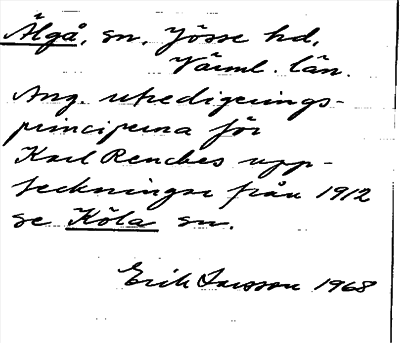 Älgå, sn, Jösse hd,
Värml. län.
Ang. utredigerings-
principerna för
Karl Renches upp-
teckningar från 1912
se Köla sn.
Erik Larsson 1968